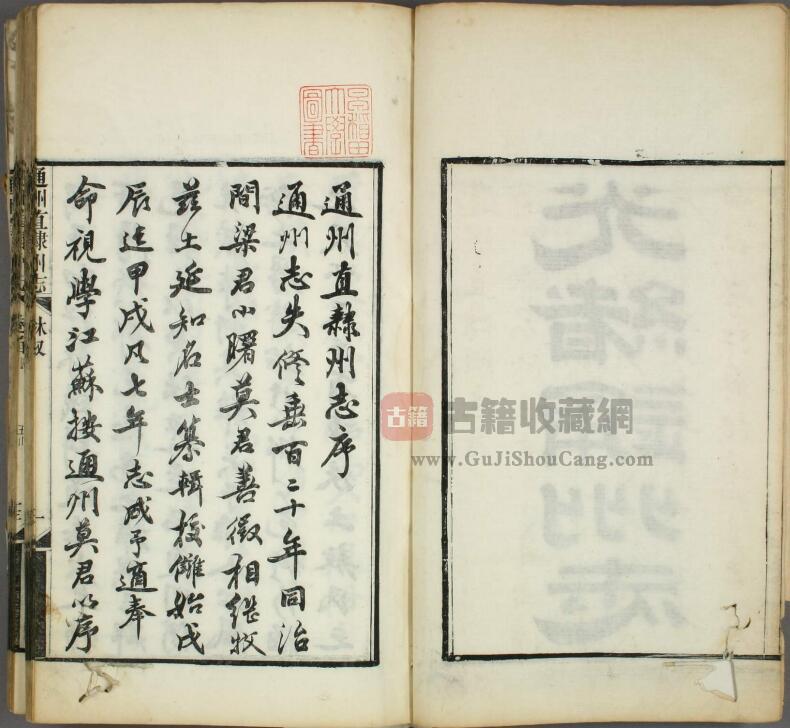 通州直隸州志序
通州志失修垂百二十年同治
間梁君小曙莫君善徵相繼牧
茲土延知名士纂輯校讎始戊
辰迄甲戌凡七年志成予適奉
命視學江蘇按通州莫君以序
通州直隸州志
林叙
一
早稻田
大學
圖書
古籍
古籍收藏網
www.GuJiShouCang.com